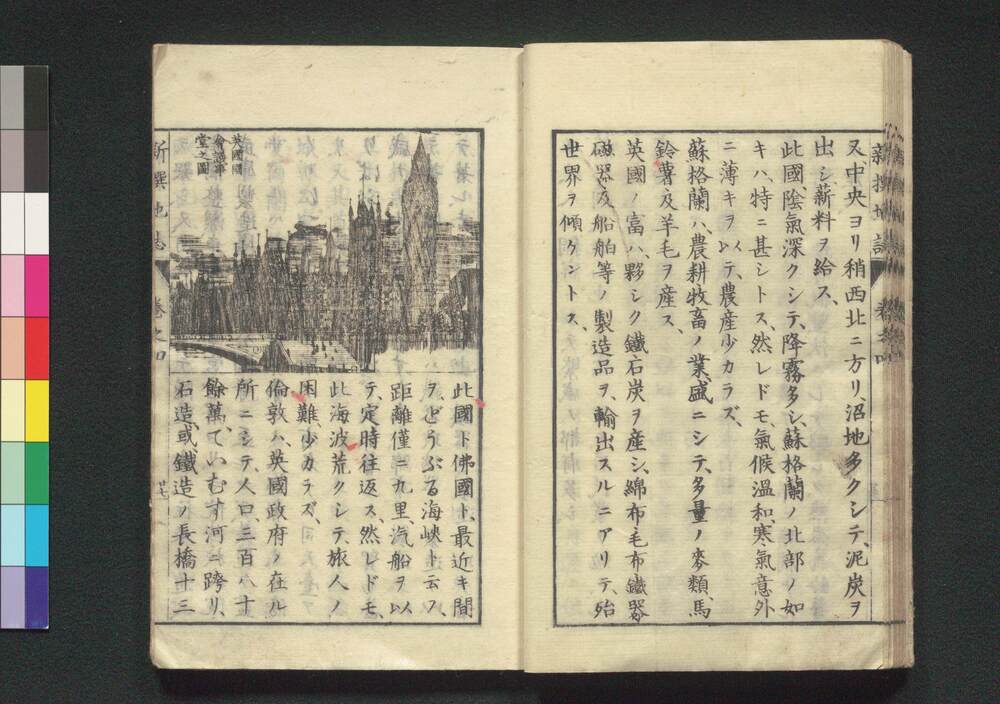 又、中央ヨリ稍西北ニ方リ、沼地多クシテ、泥炭ヲ
出シ薪料ヲ給ス、
此國、陰氣深クシテ、降霧多シ、蘇格蘭ノ北部ノ如
キハ、特ニ甚シトス、然レドモ、氣候温和、寒氣意外
ニ薄キヲ以テ、農産少カラズ、
蘇格蘭ハ、農耕牧畜ノ業盛ニシテ、多量ノ麥類、馬
鈴薯及羊毛ヲ産ス、
英國ノ富ハ、夥シク鐵石炭ヲ産シ、綿布毛布鐵器
磁器及船舶等ノ製造品ヲ、輸出スルニアリテ、殆
世界ヲ傾ケントス、
英國國
會議事
堂之圖
此國ト佛國ト、最近キ間
ヲどうぶる海峡ト云フ
距離僅ニ九里、汽船ヲ以
テ、定時往返ス、然レドモ、
此海波荒クシテ、旅人ノ
困難少カラズ、
倫敦ハ、英國政府ノ在ル
所ニシテ、人口、三百八十
餘萬、ていむす河ニ跨リ、
石造、或鐵造ノ長橋十三
新撰地誌
卷之四
廿七